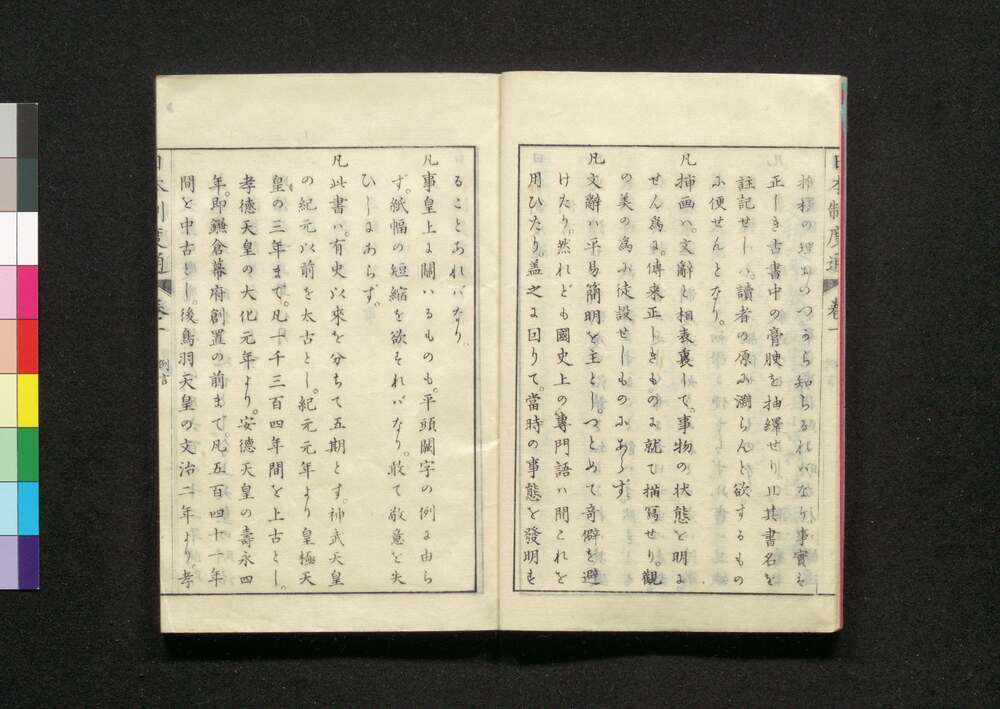 推移の理おのつから知らるれバなり事實ハ
正しき古書中の膏腴を抽繹せり且其書名を
註記せしハ讀者の原に溯らんと欲するもの
に便せんとなり。
凡挿画ハ。文辭と相表裏して。事物の状態を明に
せん為に。傳来正しきものに就て描寫せり。觀
の美の為に徒設せしものにあらず
凡文辭ハ平易簡明を主とし。つとめて奇僻を避
けたり。然れども國史上の專門語ハ間これを
用ひたり。盖之に因りて。當時の事態を發明す
ることあれバなり
凡事皇上に關ハるものも。平頭闕字の例に由ら
ず。紙幅の短縮を欲すれバなり。敢て敬意を失
ひしにあらず。
凡此書ハ。有史以來を分ちて五期とす。神武天皇
の紀元以前を太古とし。紀元元年より皇極天
皇の三年まで。凡一千三百四年間を上古とし。
孝德天皇の大化元年より。安德天皇の壽永四
年。即鎌倉幕府創置の前まで。凡五百四十一年
間を中古とし。後鳥羽天皇の文治二年より。孝
日本制度通 巻一 例言